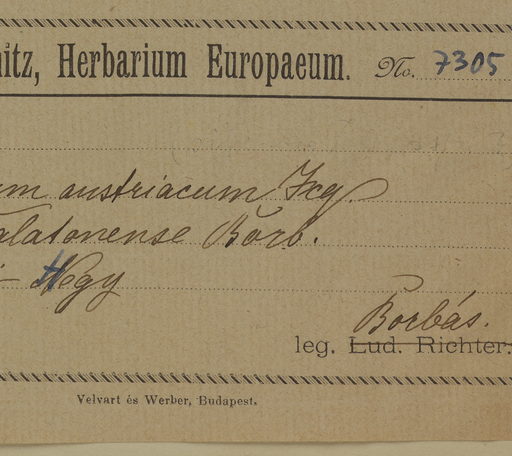 nitz, Herbarium Europaeum. No. 7305
um austriacum Jcq.
alatonense Borb.
- Hegy
Borbás.
leg. Lud. Richter.
Velvart és Werber, Budapest.